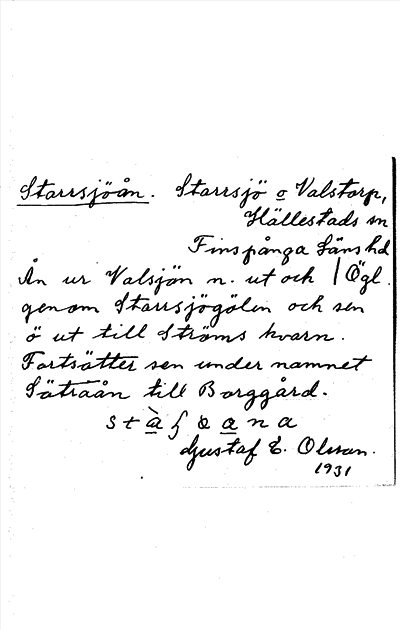 Starrsjöån. Starrsjö o Valstorp,
Hällestads sn
Finspånga Läns hd
Ån ur Valsjön n. ut och / Ögl.
genom Starrsjögölen och sen
ö ut till Ströms kvarn.
Fortsätter sen under namnet
Sätraån till Borggård.
Gustaf E. Olsson.
1931